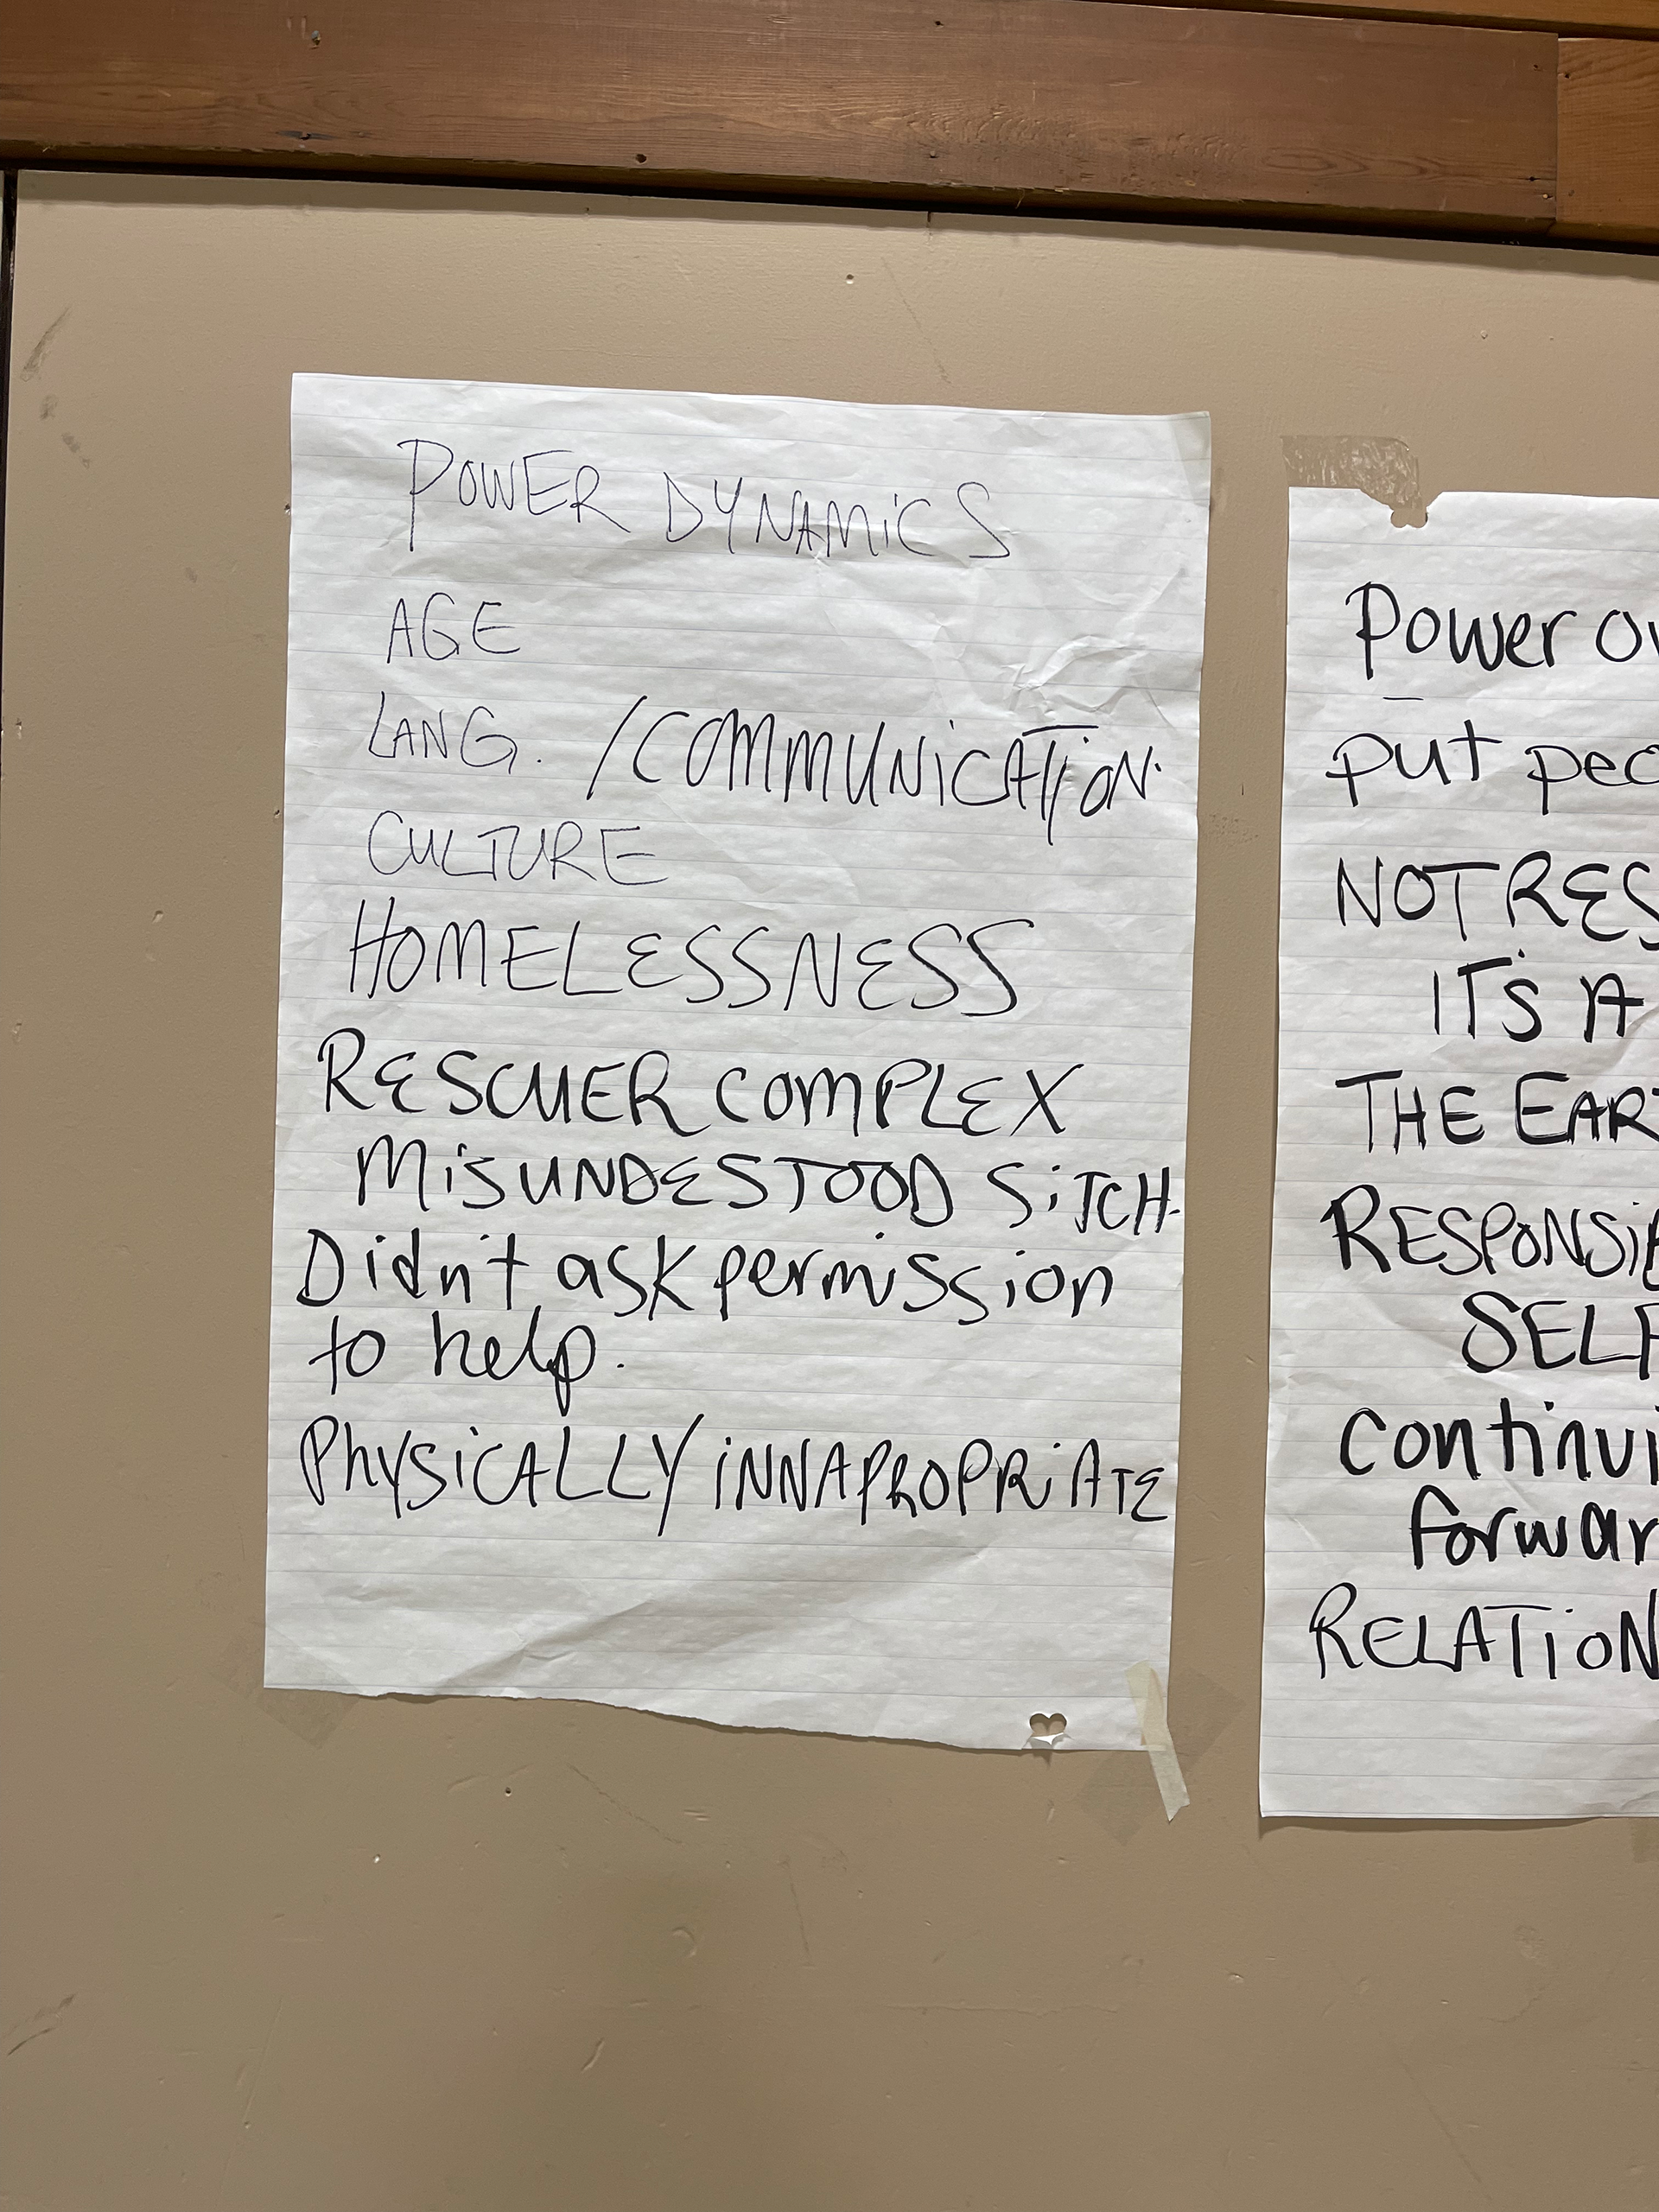 POWER DYNAMICS
AGE
LANG. /COMMUNICATION.
CULTURE
HOMELESSNESS
RESCUER COMPLEX
MISUNDESTOOD SITCH.
Didn't ask permission
to help.
PHYSICALLY INNAPROPRIATE
Power
put
NOT
IT'S A
THE
SELF
RELATION